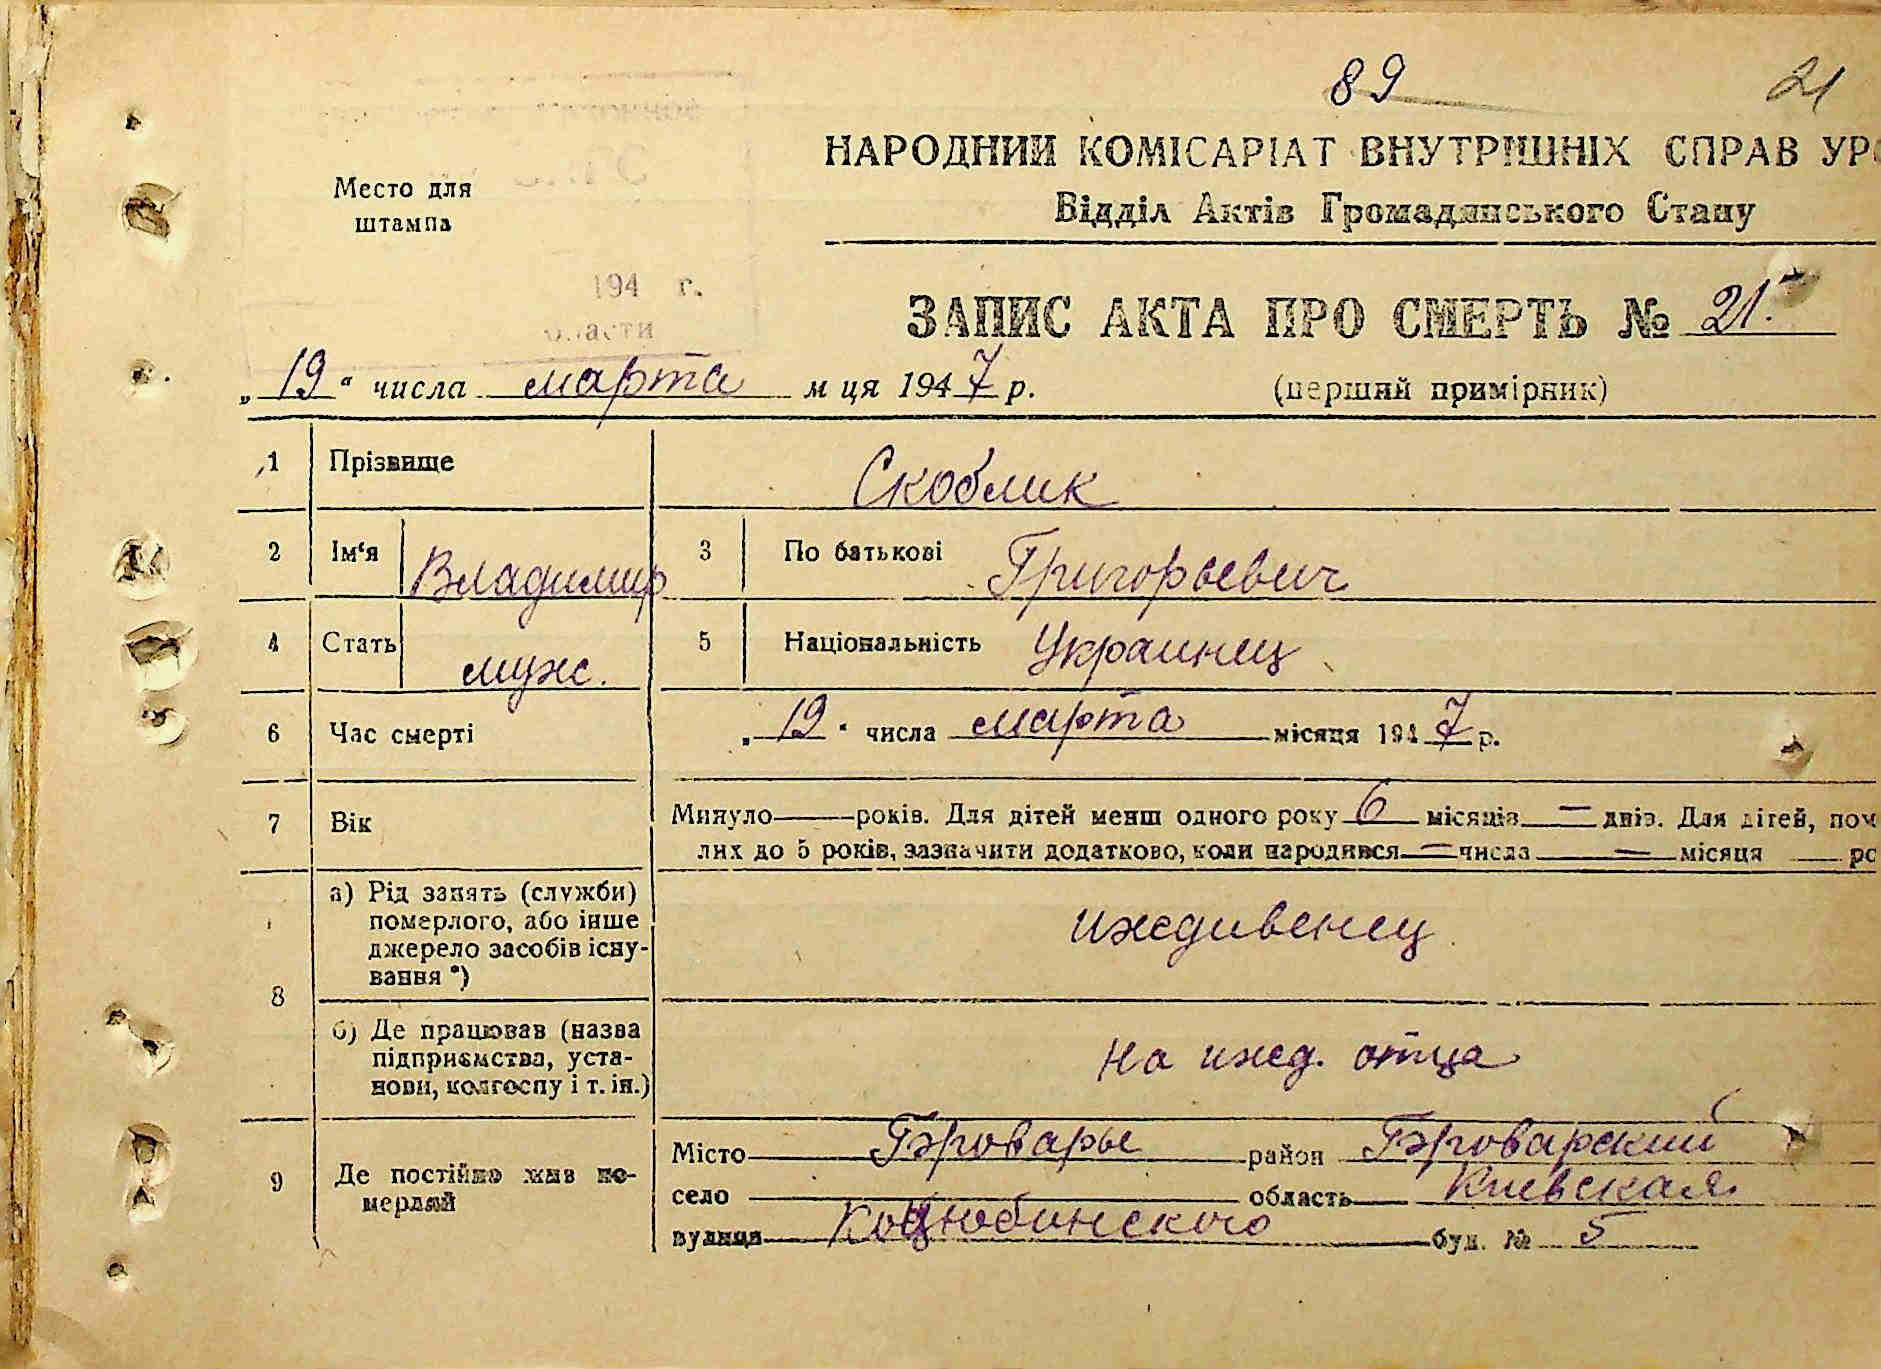 89 21
НАРОДНИЙ КОМІСАРІАТ ВНУТРІШНІХ СПРАВ УР
Место для
штампа
Відділ Актів Громадянського Стану
194 г.
области
ЗАПИС АКТА ПРО СМЕРТЬ № 21.
„19“ числа марта м ця 1947 р. (перший примірник)
1 Прізвище Скоблик
2 Ім‘я Владимир 3 По батькові Григорьевич
4 Стать муж. 5 Національність Украинец
6 Час смерті „19“ числа марта місяця 1947 р.
7 Вік Минуло — років. Для дітей менш одного року 6 місяців — днів. Для дітей, пом
лих до 5 років, зазначити додатково, коли народився — числа — місяця ро
8 а) Рід занять (служби)
померлого, або інше
джерело засобів існу-
вання *) иждивенец
б) Де працював (назва
підприємства, уста-
нови, колгоспу і т. ін.) на ижд. отца
9 Де постійно жив по-
мерлий
Місто Бровары район Броварский
село область Киевская
вулиця Коцюбинского буд. № 5